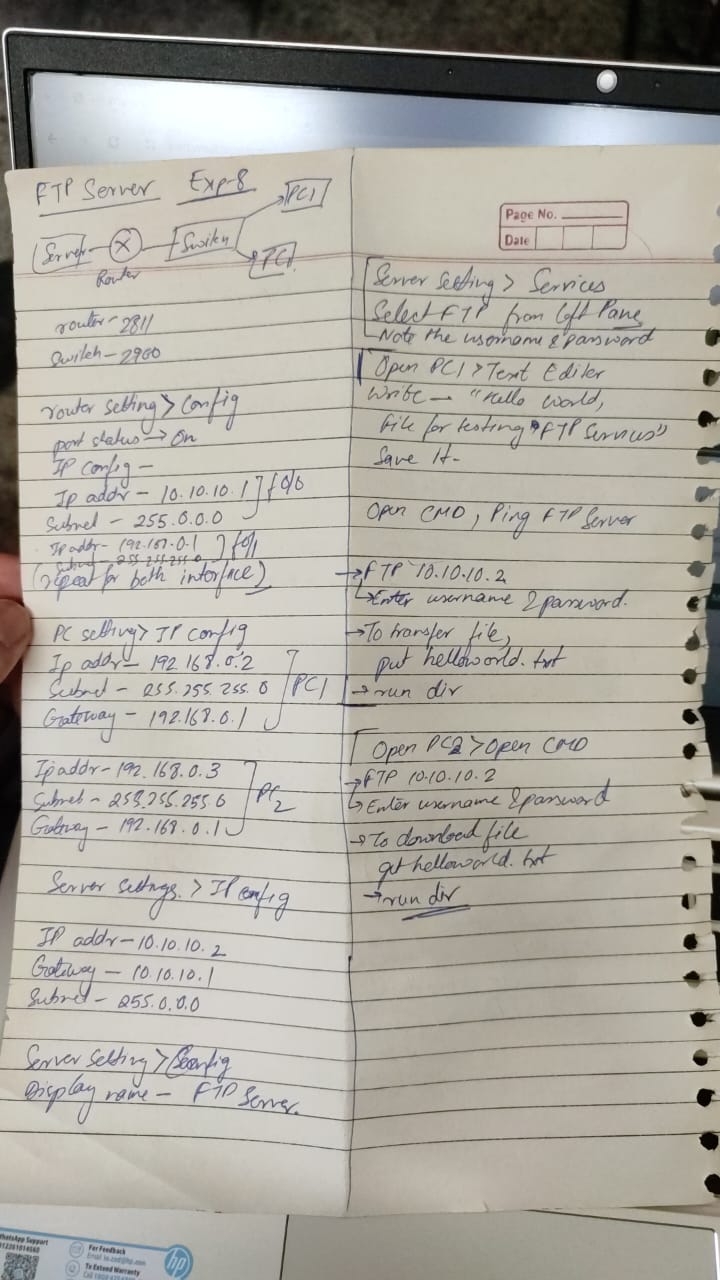 FTP Server Exp-8
Server
X
Router
Switch
PC1
PC
router - 2811
Switch - 2960
router setting > Config
port status → On
IP config -
Ip addr - 10.10.10.1
Subnet - 255.0.0.0
f0/0
Ip addr - 192.167.0.1
255.255.255.0
f0/1
(repeat for both interface)
PC setting > IP config
Ip addr - 192.168.0.2
Subnet - 255.255.255.0
Gateway - 192.168.0.1
PC1
Ip addr - 192.168.0.3
Subnet - 255.255.255.0
Gateway - 192.168.0.1
PC2
Server settings. > IP config
IP addr - 10.10.10.2
Gateway - 10.10.10.1
Subnet - 255.0.0.0
Server setting > Config
Display name - FTP Server.
Page No.
Date
Server setting > Services
Select FTP from left Pane
Note the username & password
Open PC1 > Text Editer
Write - "Hello world,
file for testing FTP Services"
Save It-
Open CMD, Ping FTP Server
→ FTP 10.10.10.2
↳ Enter username & password.
→ To transfer file,
put helloworld.txt
→ run dir
Open PC2 > Open CMD
→ FTP 10.10.10.2
↳ Enter username & password
→ To download file
get helloworld.txt
→ run dir
WhatsApp Support
For Feedback
To Extend Warranty
hp